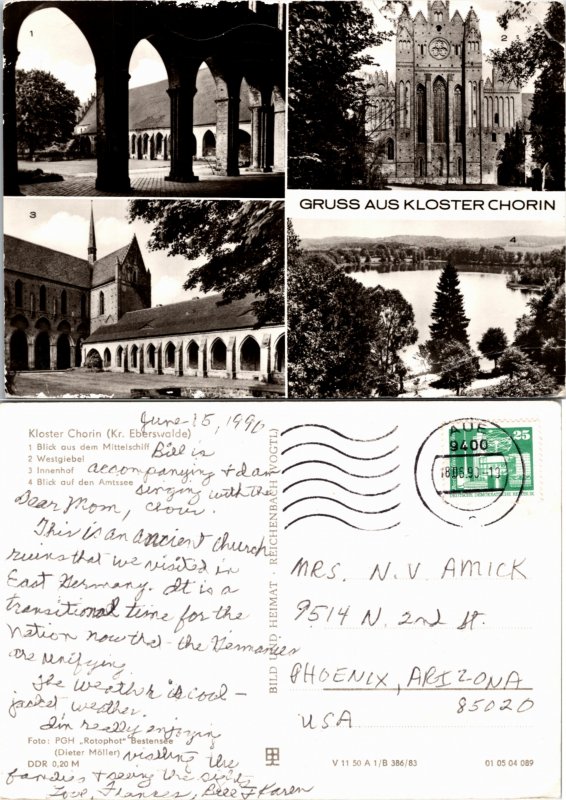 1
2
GRUSS AUS KLOSTER CHORIN
3
4
June 15, 1990
Kloster Chorin (Kr. Eberswalde)
1 Blick aus dem Mittelschiff
2 Westgiebel
3 Innenhof
4 Blick auf den Amtssee
Bill is
accompanying + Jan
singing with the
choir.
Dear Mom,
This is an ancient church
ruins that we visited in
East Germany. It is a
transitional time for the
Nation now that the Germanies
are unifying.
The weather is cool -
jacket weather.
I'm really enjoying
visiting the
families + seeing the sights
Love, Frances, Bill & Karen
Foto: PGH „Rotophot" Bestensee
(Dieter Möller)
DDR 0,20 M
BILD UND HEIMAT · REICHENBACH (VOGTL)
AUE
9400
18.06.90
25
DEUTSCHE DEMOKRATISCHE REPUBLIK
MRS. N. V. AMICK
9514 N. 2nd St.
PHOENIX, ARIZONA
85020
USA
V 11 50 A 1/B 386/83
01 05 04 089